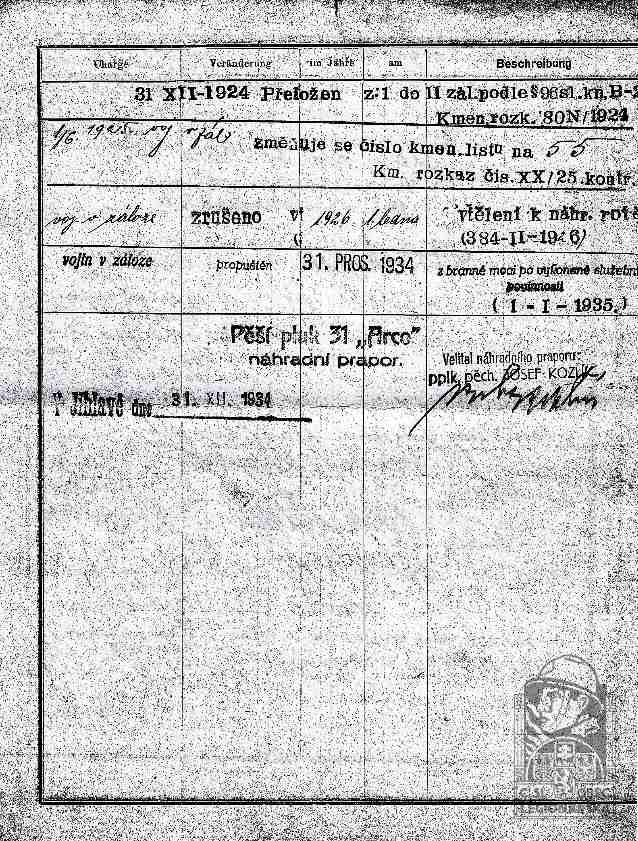 Charge Veränderung im Jahre am Beschreibung
31 XII-1924 Přeložen z:1 do II zál.podle § 96sl.kn.B-2
Kmen.rozk. 30N/1924
1/6. 1925. voj v zál.
změňuje se číslo kmen.listu na 55
Km. rozkaz čís.XX/25.kontr.
voj v záloze zrušeno v 1926 vtělení k náhr. rotě
(384-II-1926)
vojín v záloze propuštěn 31. PROS. 1934 z branné moci po vykonané služební
povinnosti
( I - I - 1935.)
Pěší pluk 31 „Arco"
náhradní prapor.
Velitel náhradního praporu:
pplk. pěch. JOSEF KOZLÍK
V Jihlavě dne 31. XII. 1934
ČSL. OBEC
LEGIONÁŘSKÁ